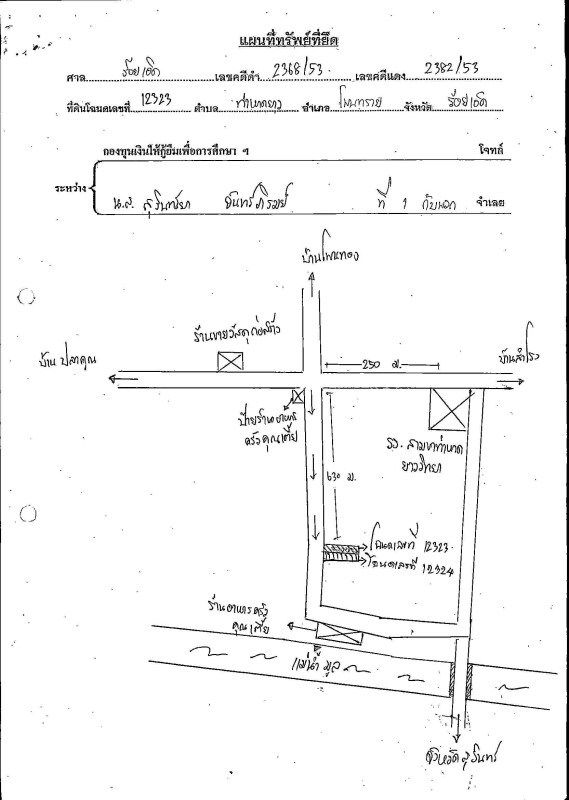 แผนที่ทรัพย์ที่ยึด
ศาล ร้อยเอ็ด เลขคดีดำ 2368/53 เลขคดีแดง 2382/53
ที่ดินโฉนดเลขที่ 12323 ตำบล ท่าหาดยาว อำเภอ โพนทราย จังหวัด ร้อยเอ็ด
กองทุนเงินให้กู้ยืมเพื่อการศึกษา ฯ โจทก์
ระหว่าง
น.ส. ที่ 1 กับพวก จำเลย
บ้านโพนทอง
ร้านขายวัสดุก่อสร้าง
บ้าน ปลาคูณ
250 ม.
บ้านสำโรง
ป้ายร้านอาหาร
ครัวคุณเตี้ย
รร. สามขาท่าหาด
ยาววิทยา
630 ม.
โฉนดเลขที่ 12323
โฉนดเลขที่ 12324
ร้านอาหารครัว
คุณเตี้ย
แม่น้ำ มูล
จังหวัดสุรินทร์